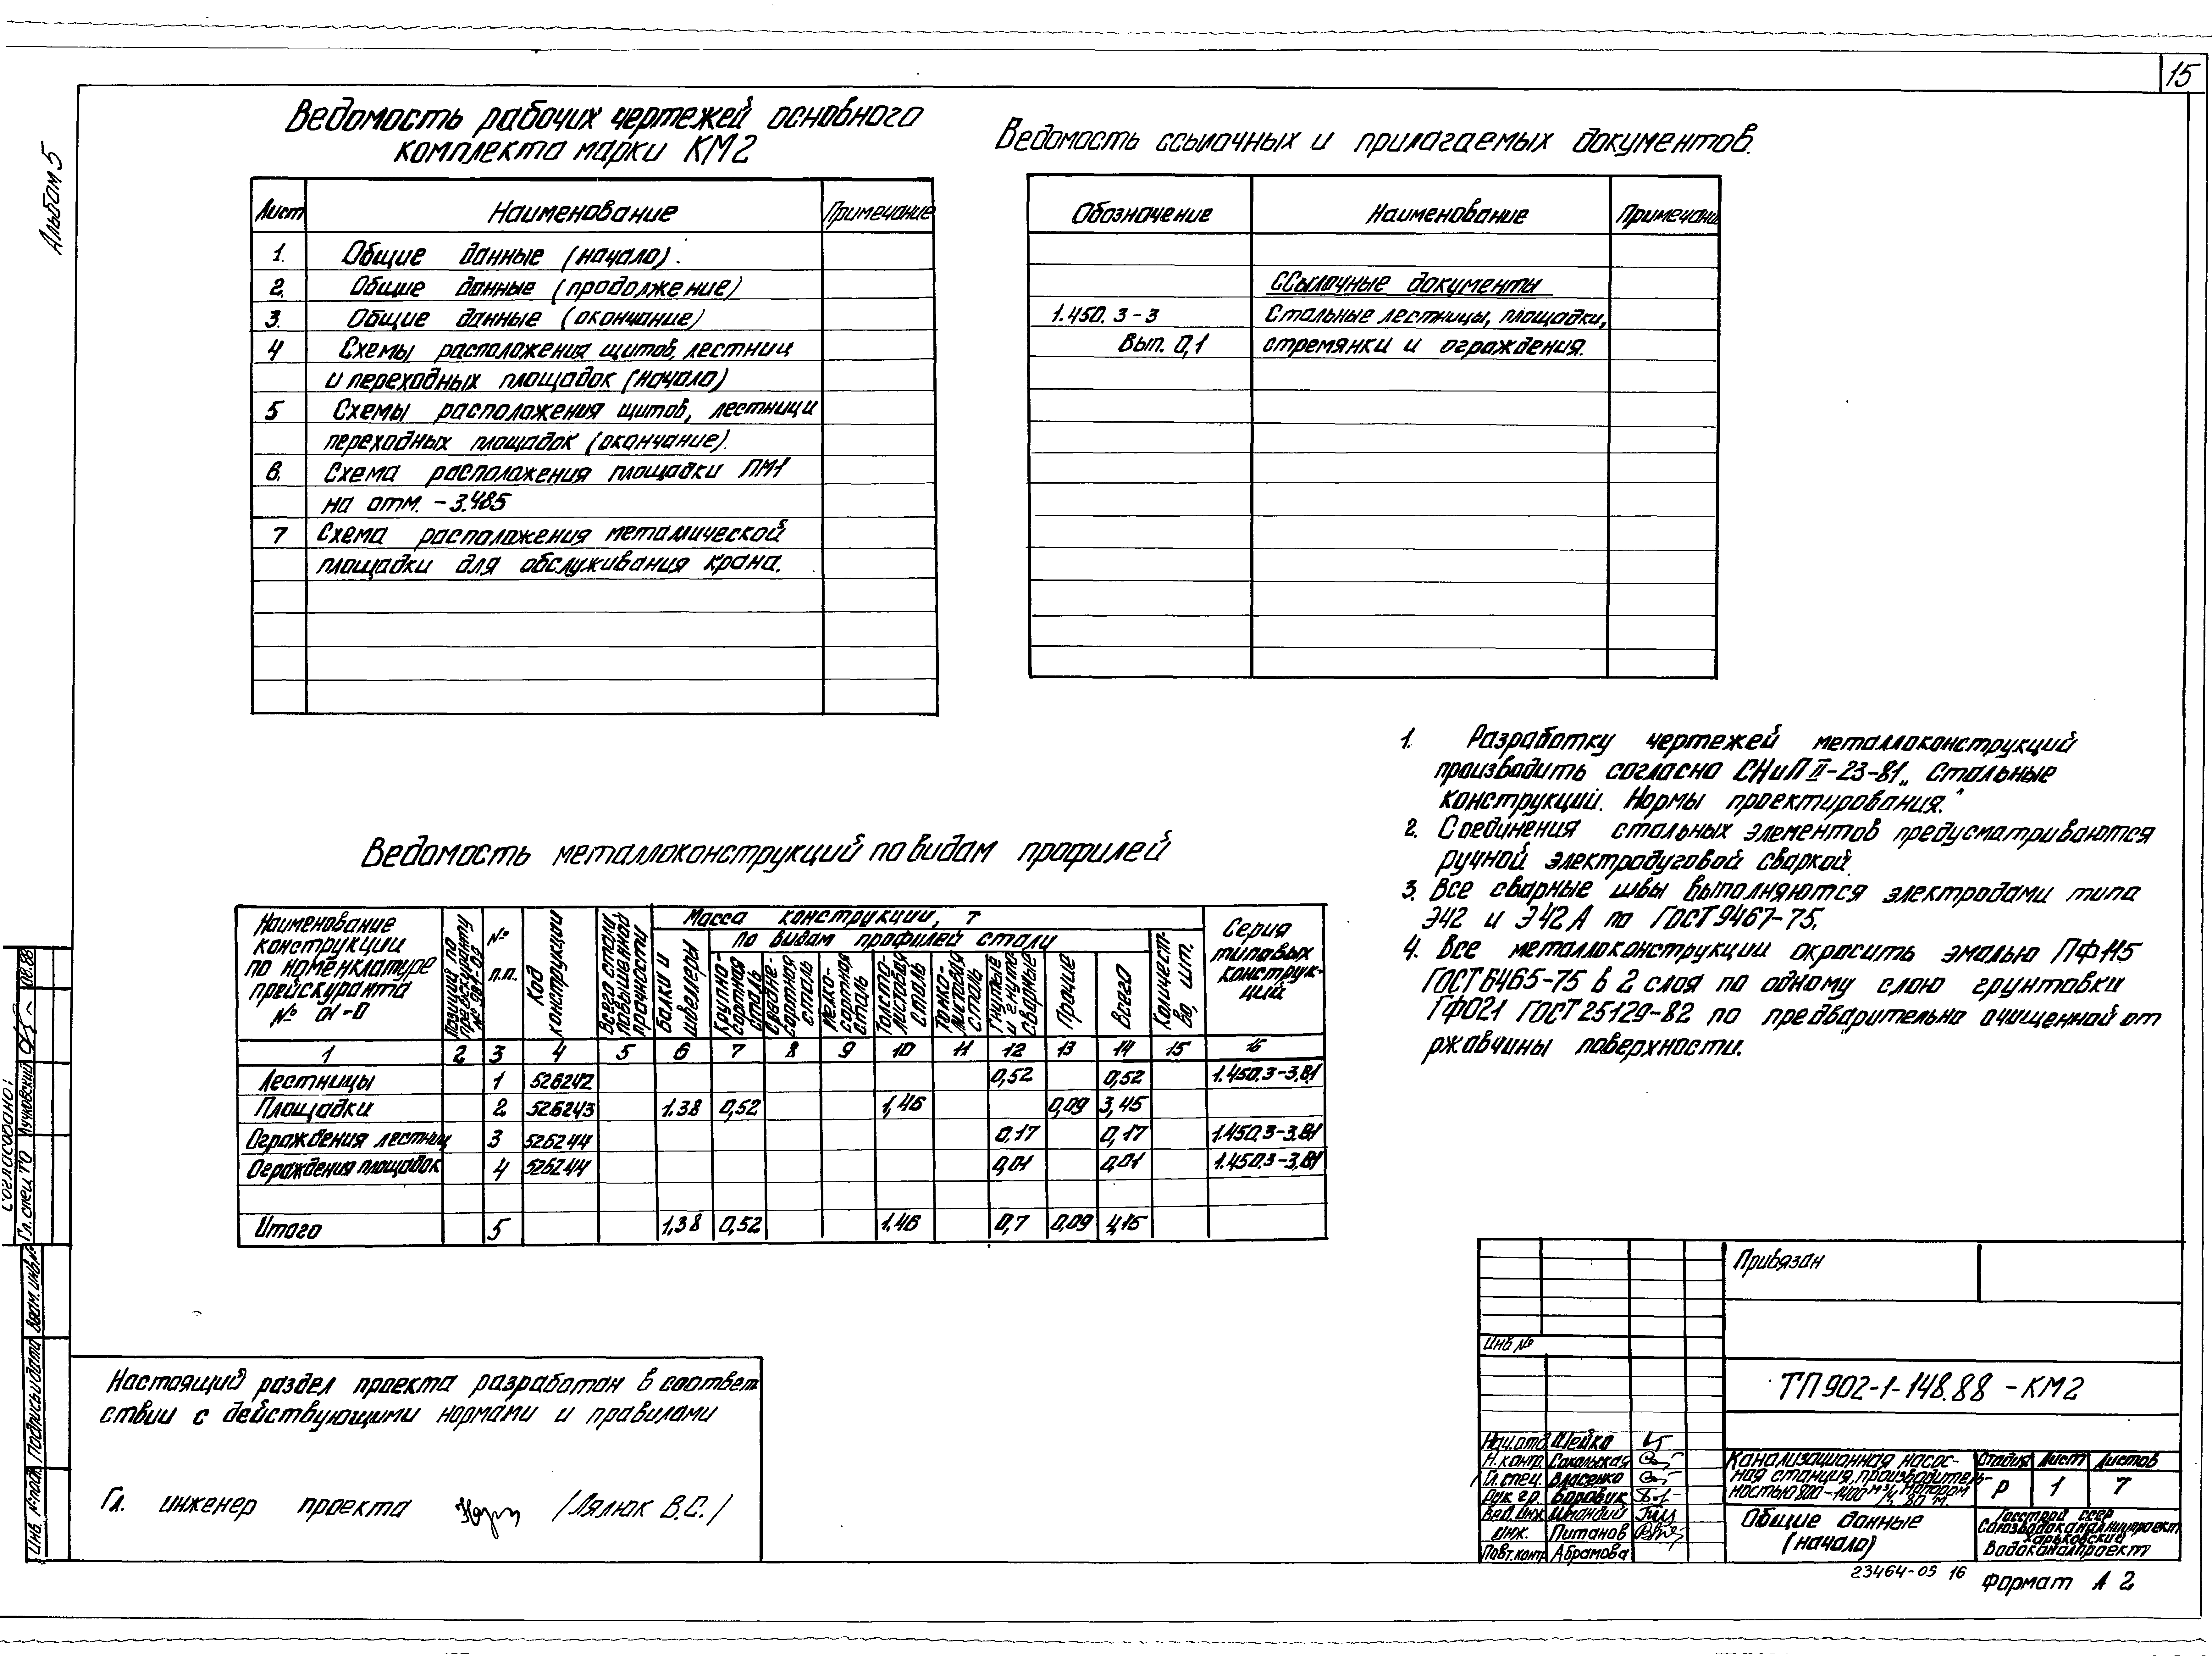 15
Альбом 5
Ведомость рабочих чертежей основного
комплекта марки КМ2
Лист Наименование Примечание
1. Общие данные (начало).
2. Общие данные (продолжение)
3. Общие данные (окончание)
4 Схемы расположения щитов, лестниц
и переходных площадок (начало)
5 Схемы расположения щитов, лестниц и
переходных площадок (окончание).
6. Схема расположения площадки ПМ1
на отм. -3.485
7 Схема расположения металлической
площадки для обслуживания крана.
Ведомость ссылочных и прилагаемых документов.
Обозначение Наименование Примечани
Ссылочные документы
1.450.3-3 Стальные лестницы, площадки,
Вып. 0,1 стремянки и ограждения.
1. Разработку чертежей металлоконструкций
производить согласно СНиП II-23-81 „Стальные
конструкции. Нормы проектирования."
2. Соединения стальных элементов предусматриваются
ручной электродуговой сваркой.
3. Все сварные швы выполняются электродами типа
Э42 и Э42А по ГОСТ 9467-75.
4. Все металлоконструкции окрасить эмалью ПФ115
ГОСТ 6465-75 в 2 слоя по одному слою грунтовки
ГФ021 ГОСТ 25129-82 по предварительно очищенной от
ржавчины поверхности.
Ведомость металлоконструкций по видам профилей
Наименование
конструкции
по номенклатуре
прейскуранта
№ 01-0
Позиция по
прейскуранту
№ 901-09
№
п.п.
Код
конструкции
Всего стали
повышенной
прочности
Масса конструкции, т
по видам профилей стали
Балки и
швеллеры
Крупно-
сортная
сталь
Средне-
сортная
сталь
Мелко-
сортная
сталь
Толсто-
листовая
сталь
Тонко-
листовая
сталь
Гнутые
и гнуто
сварные
Прочие
Всего
Количест-
во, шт.
Серия
типовых
конструк-
ций
1 2 3 4 5 6 7 8 9 10 11 12 13 14 15 16
Лестницы 1 526242 0,52 0,52 1.450.3-3,В.1
Площадки 2 526243 1.38 0,52 1,46 0,09 3,45
Ограждения лестниц 3 526244 0,17 0,17 1.450.3-3,В.1
Ограждения площадок 4 526244 0,01 0,01 1.450.3-3,В.1
Итого 5 1,38 0,52 1.46 0,7 0,09 4,15
Настоящий раздел проекта разработан в соответ
ствии с действующими нормами и правилами
Гл. инженер проекта /Лялюк В.С./
Согласовано:
Гл. спец. ТО Лучковский 08.88
Взам. инв.№
Подпись и дата
Инв. № подл.
Привязан
Инв №
ТП 902-1-148.88 -КМ2
Нач.отд. Шейко
Н. контр. Сокольская
Гл. спец. Власенко
Рук. гр. Боровик
Вед. инж
инж. Питанов
Повт.контр Абрамова
Канализационная насос-
ная станция, производитель-
ностью 800-1400 м³/ч, напором 80 м.
Стадия Лист Листов
Р 1 7
Общие данные
(начало)
Госстрой СССР
Союзводоканалниипроект
Харьковский
Водоканалпроект
23464-05 16
Формат А 2